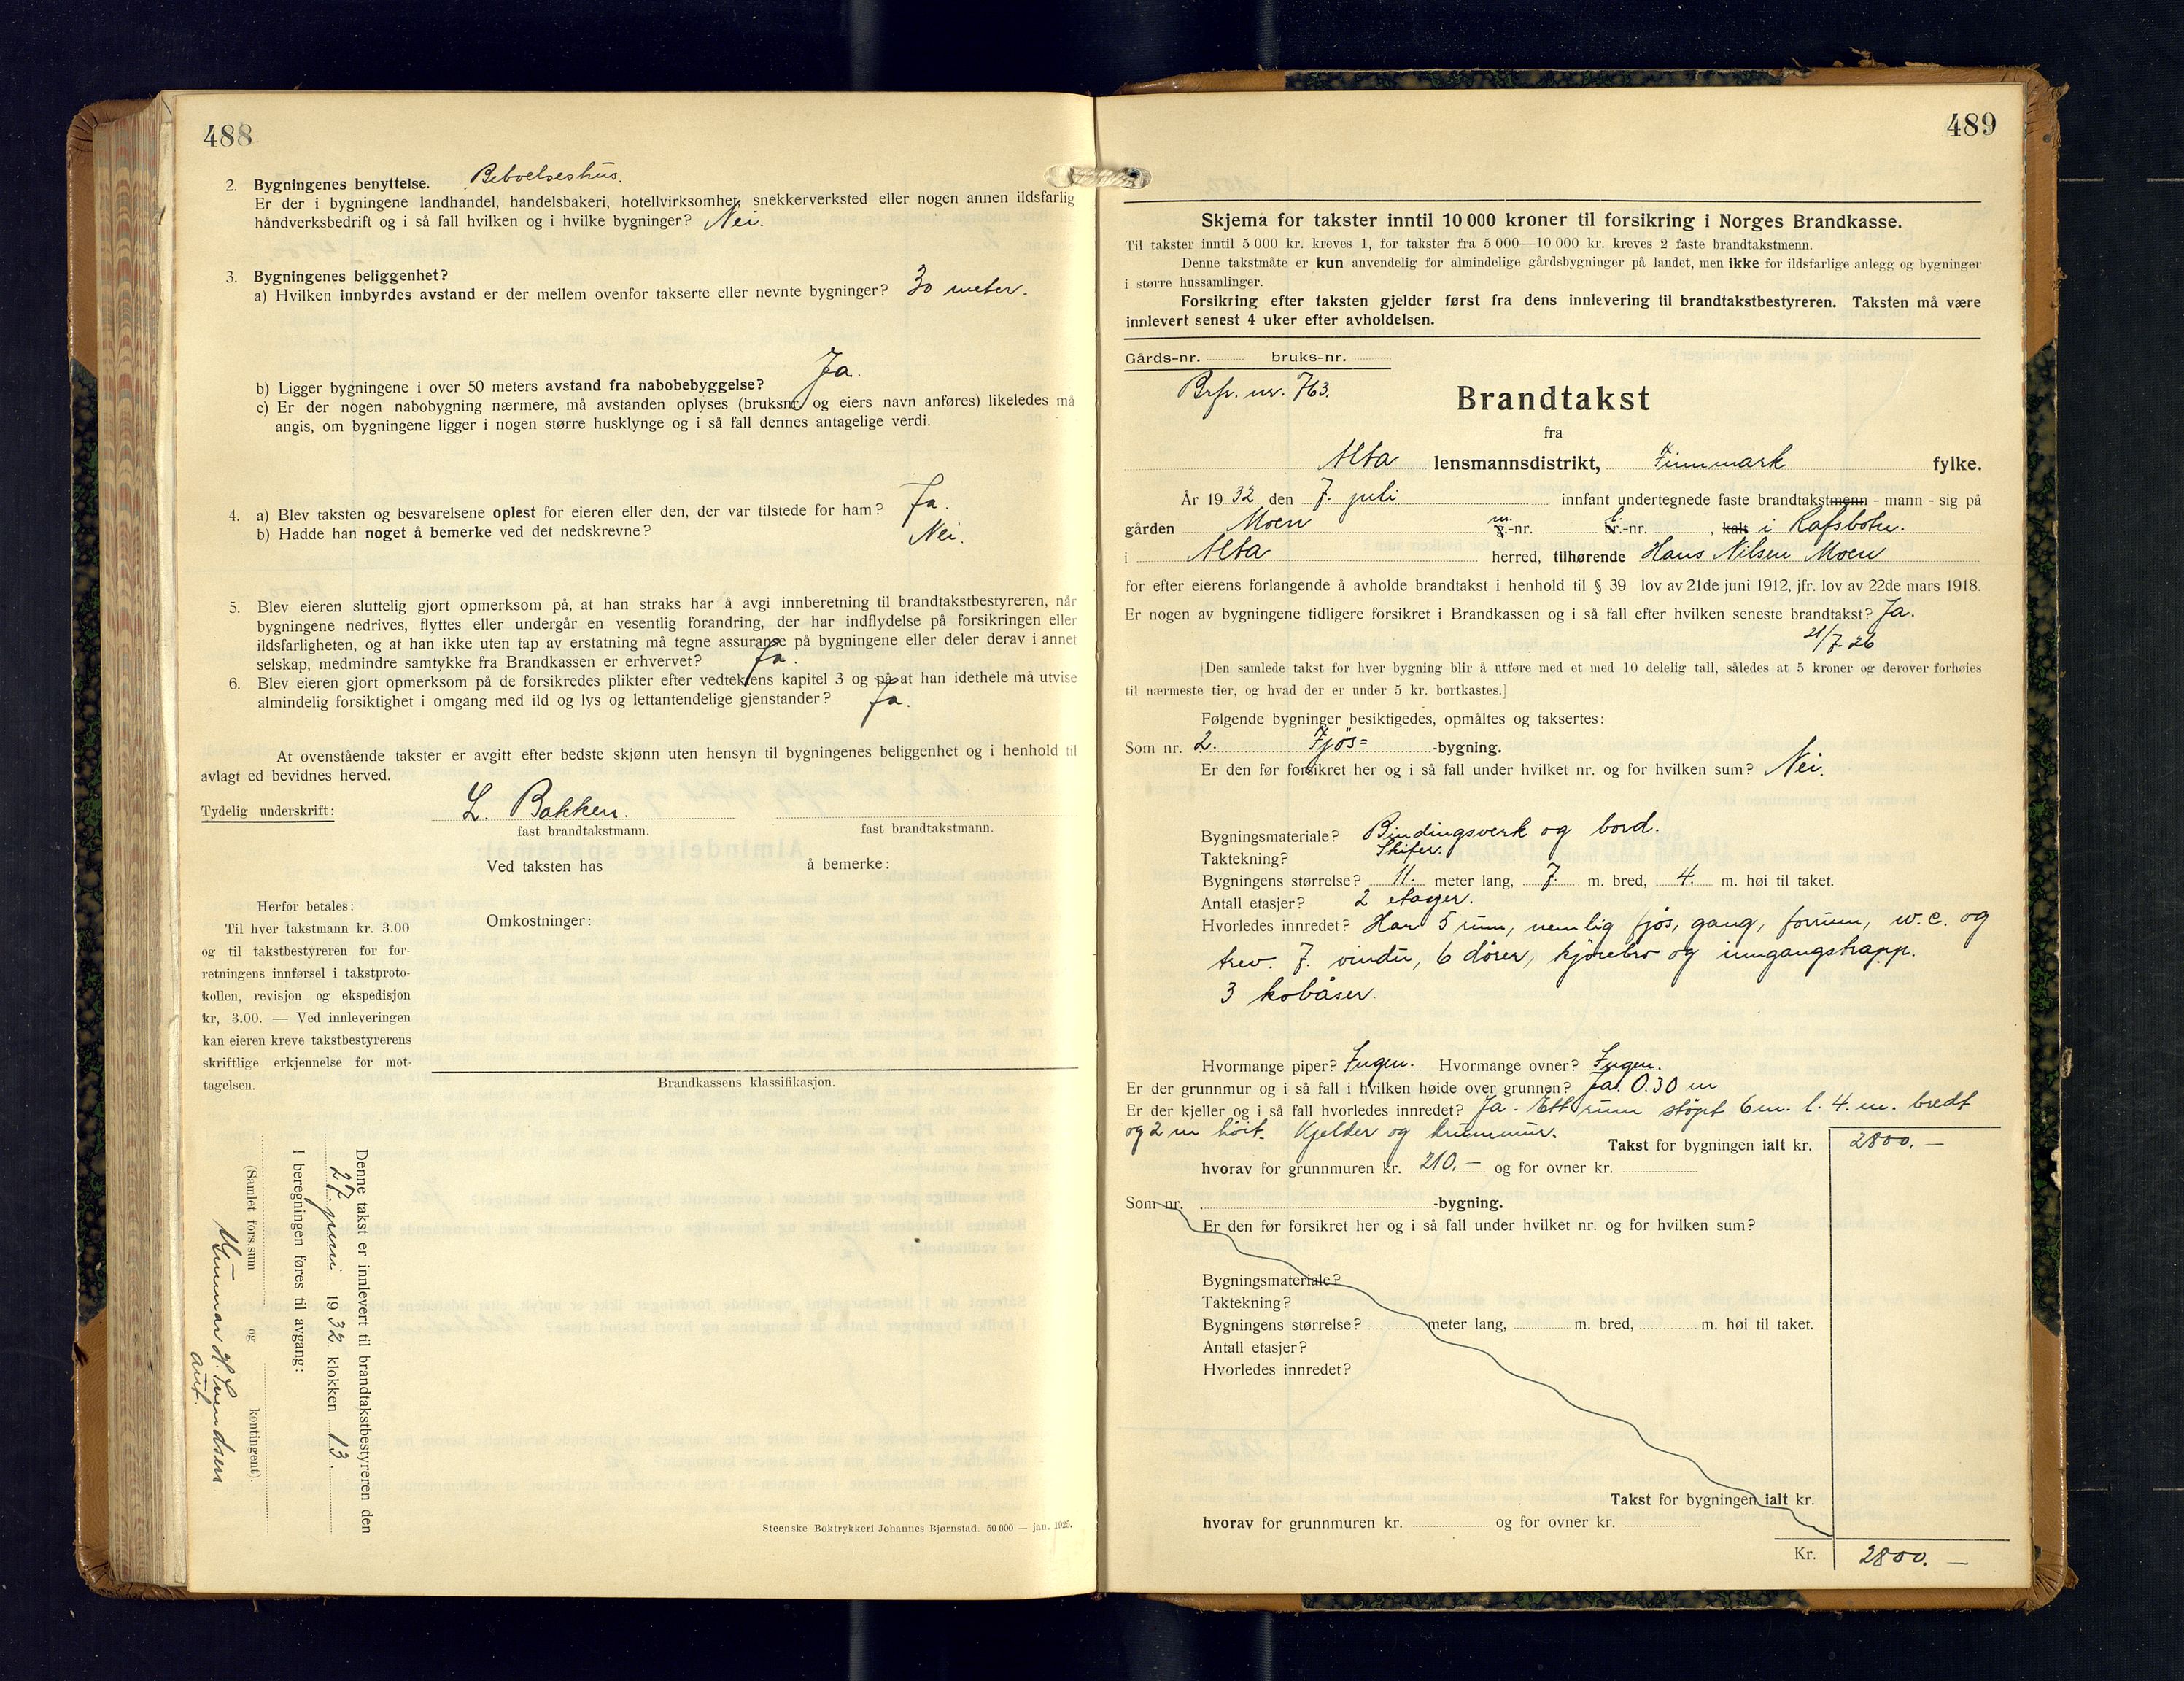 488
2. Bygningenes benyttelse. Beboelseshus.
Er der i bygningene landhandel, handelsbakeri, hotellvirksomhet, snekkerverksted eller nogen annen ildsfarlig
håndverksbedrift og i så fall hvilken og i hvilke bygninger? Nei.
3. Bygningenes beliggenhet?
a) Hvilken innbyrdes avstand er der mellem ovenfor takserte eller nevnte bygninger? 30 meter.
b) Ligger bygningene i over 50 meters avstand fra nabobebyggelse? Ja.
c) Er der nogen nabobygning nærmere, må avstanden oplyses (bruksnr. og eiers navn anføres) likeledes må
angis, om bygningene ligger i nogen større husklynge og i så fall dennes antagelige verdi.
4. a) Blev taksten og besvarelsene oplest for eieren eller den, der var tilstede for ham? Ja.
b) Hadde han noget å bemerke ved det nedskrevne? Nei.
5. Blev eieren sluttelig gjort opmerksom på, at han straks har å avgi innberetning til brandtakstbestyreren, når
bygningene nedrives, flyttes eller undergår en vesentlig forandring, der har indflydelse på forsikringen eller
ildsfarligheten, og at han ikke uten tap av erstatning må tegne assuranse på bygningene eller deler derav i annet
selskap, medmindre samtykke fra Brandkassen er erhvervet? Ja.
6. Blev eieren gjort opmerksom på de forsikredes plikter efter vedtektens kapitel 3 og på at han idethele må utvise
almindelig forsiktighet i omgang med ild og lys og lettantendelige gjenstander? Ja.
At ovenstående takster er avgitt efter bedste skjønn uten hensyn til bygningenes beliggenhet og i henhold til
avlagt ed bevidnes herved.
Tydelig underskrift: L. Bakken.
fast brandtakstmann. fast brandtakstmann.
Ved taksten has å bemerke:
Herfor betales:
Til hver takstmann kr. 3.00
og til takstbestyreren for for-
retningens innførsel i takstproto-
kollen, revisjon og ekspedisjon
kr, 3.00. — Ved innleveringen
kan eieren kreve takstbestyrerens
skriftlige erkjennelse for mot-
tagelsen.
Omkostninger:
Brandkassens klassifikasjon.
Denne takst er innlevert til brandtakstbestyreren den
27. juni 1932 klokken 13
I beregningen føres til avgang:
(Samlet fors.sum og kontingent).
Gunnar H. Svendsen
aut.
Steenske Boktrykkeri Johannes Bjørnstad. 50 000 — jan. 1925.
489
Skjema for takster inntil 10 000 kroner til forsikring i Norges Brandkasse.
Til takster inntil 5 000 kr. kreves 1, for takster fra 5 000—10 000 kr. kreves 2 faste brandtakstmenn.
Denne takstmåte er kun anvendelig for almindelige gårdsbygninger på landet, men ikke for ildsfarlige anlegg og bygninger
i større hussamlinger.
Forsikring efter taksten gjelder først fra dens innlevering til brandtakstbestyreren. Taksten må være
innlevert senest 4 uker efter avholdelsen.
Gårds-nr. bruks-nr.
Brfr. nr. 763.
Brandtakst
fra
Alta lensmannsdistrikt, Finnmark fylke.
År 1932 den 7. juli innfant undertegnede faste brandtakstmenn - mann - sig på
gården Moen m.-nr. l.-nr. , kalt i Rafsbotn.
i Alta herred, tilhørende Hans Nilsen Moen
for efter eierens forlangende å avholde brandtakst i henhold til § 39 lov av 21de juni 1912, jfr. lov av 22de mars 1918.
Er nogen av bygningene tidligere forsikret i Brandkassen og i så fall efter hvilken seneste brandtakst? Ja.
21/7-26
[Den samlede takst for hver bygning blir å utføre med et med 10 delelig tall, således at 5 kroner og derover forhøies
til nærmeste tier, og hvad der er under 5 kr. bortkastes.]
Følgende bygninger besiktigedes, opmåltes og taksertes:
Som nr. 2. Fjøs= -bygning.
Er den før forsikret her og i så fall under hvilket nr. og for hvilken sum? Nei.
Bygningsmateriale? Bindingsverk og bord.
Taktekning? Skifer.
Bygningens størrelse? 11. meter lang, 7. m. bred, 4. m. høi til taket.
Antall etasjer? 2 etasjer.
Hvorledes innredet? Har 5 rum, nemlig fjøs, gang, forrum, w.c. og
trev. 7. vindu, 6 dører, kjørebro og inngangstrapp.
3 kobåser.
Hvormange piper? Ingen. Hvormange ovner? Ingen.
Er der grunnmur og i så fall i hvilken høide over grunnen? Ja. 0.30 m
Er der kjeller og i så fall hvorledes innredet? Ja. Ett rum støpt 6 m. l. 4. m. bredt
og 2 m høit. Kjelder og
Takst for bygningen ialt kr. 2800.—
hvorav for grunnmuren kr. 210.— og for ovner kr.
Som nr. -bygning.
Er den før forsikret her og i så fall under hvilket nr. og for hvilken sum?
Bygningsmateriale?
Taktekning?
Bygningens størrelse? meter lang, m. bred, m. høi til taket.
Antall etasjer?
Hvorledes innredet?
Takst for bygningen ialt kr.
hvorav for grunnmuren kr. og for ovner kr.
Kr. 2800.—